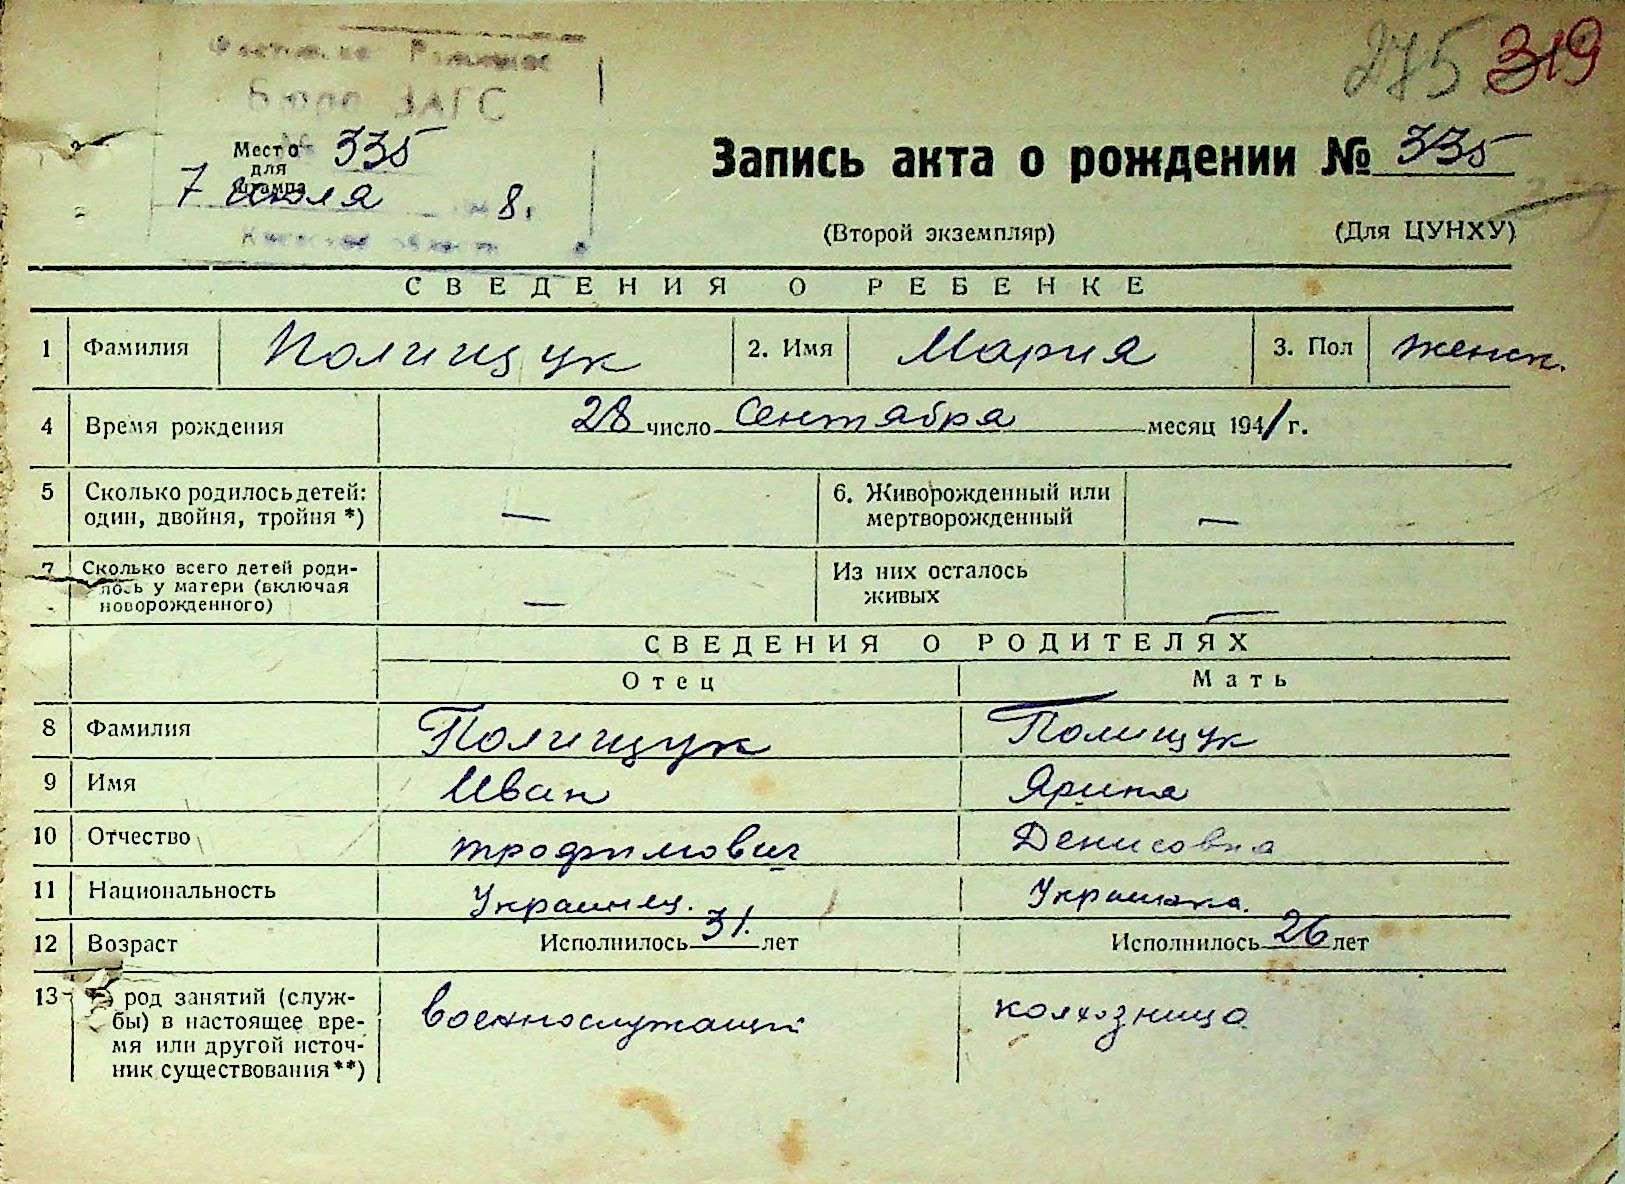 275 319
Бюро ЗАГС
№ 335
Место для штампа
7 июля 8 г.
Киевской области
Запись акта о рождении № 335
(Второй экземпляр) (Для ЦУНХУ)
СВЕДЕНИЯ О РЕБЕНКЕ
1 Фамилия Полищук 2. Имя Мария 3. Пол женск.
4 Время рождения 28 число Сентября месяц 1941 г.
5 Сколько родилось детей: 6. Живорожденный или
один, двойня, тройня *) — мертворожденный —
7 Сколько всего детей роди- Из них осталось
лось у матери (включая живых —
новорожденного) —
СВЕДЕНИЯ О РОДИТЕЛЯХ
Отец Мать
8 Фамилия Полищук Полищук
9 Имя Иван Ярина
10 Отчество трофимович Денисовна
11 Национальность Украинец. Украинка.
12 Возраст Исполнилось 31. лет Исполнилось 26 лет
13 род занятий (служ- военнослужащий колхозница
бы) в настоящее вре-
мя или другой источ-
ник существования **)